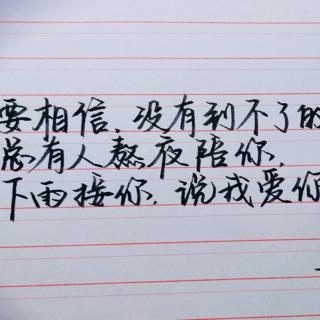 要相信,没有到不了的
总有人熬夜陪你,
下雨接你,说我爱你